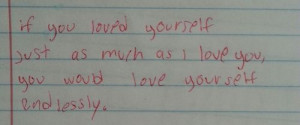 if you loved yourself
just as much as I love you,
you would love yourself
endlessly.